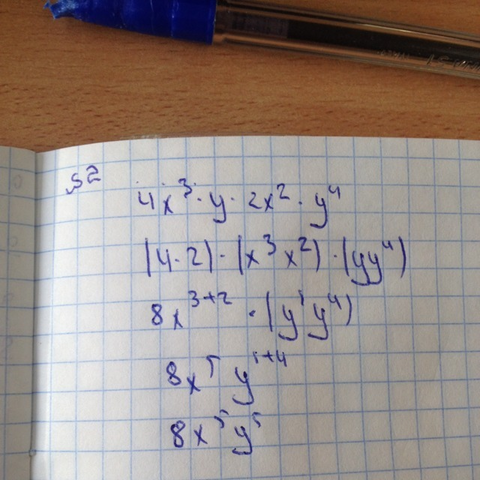 52
4x³ · y · 2x² · y⁴
(4·2) · (x³x²) · (yy⁴)
8x³⁺² · (y¹y⁴)
8x⁵ y¹⁺⁴
8x⁵y⁵